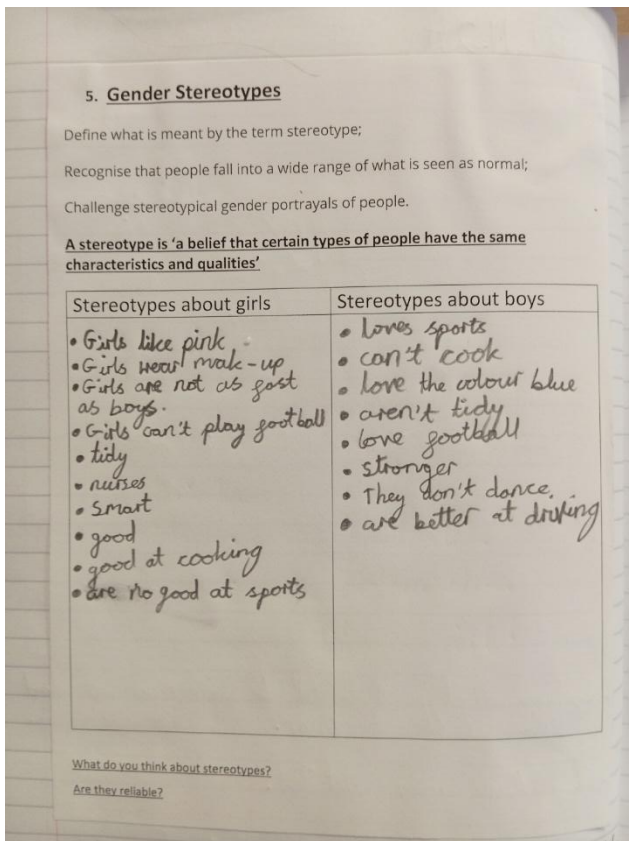 5. Gender Stereotypes
Define what is meant by the term stereotype;
Recognise that people fall into a wide range of what is seen as normal;
Challenge stereotypical gender portrayals of people.
A stereotype is ‘a belief that certain types of people have the same
characteristics and qualities’
Stereotypes about girls
• Girls like pink
• Girls wear make-up
• Girls are not as fast
as boys.
• Girls can't play football
• tidy
• nurses
• smart
• good
• good at cooking
• are no good at sports
Stereotypes about boys
• loves sports
• can't cook
• love the colour blue
• aren't tidy
• love football
• stronger
• They don't dance.
• are better at driving
What do you think about stereotypes?
Are they reliable?